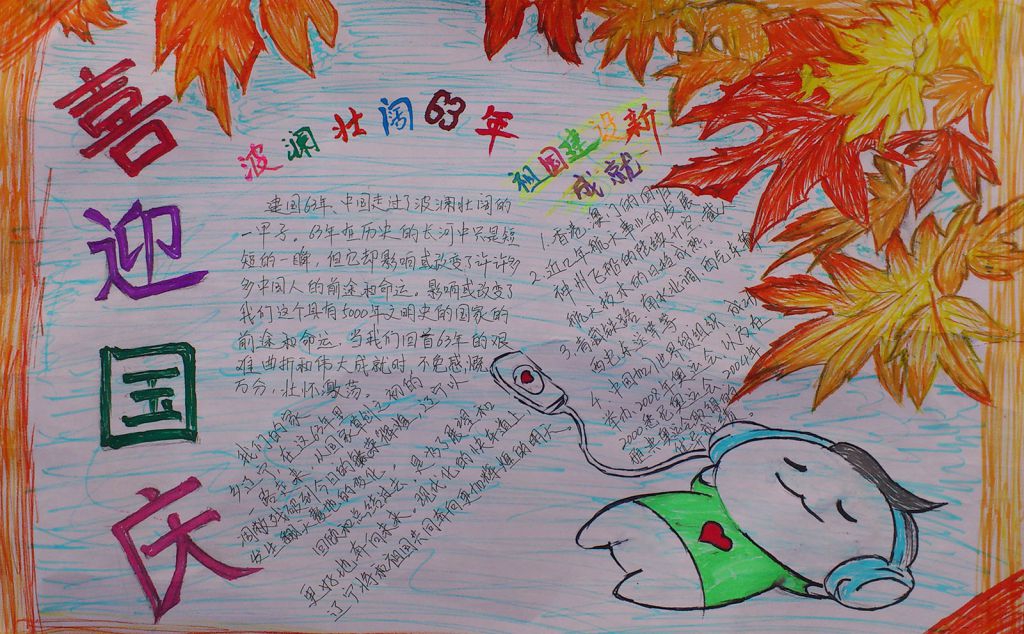 喜迎国庆
波澜壮阔63年
建国63年、中国走过了波澜壮阔的
一甲子。63年在历史的长河中只是短
短的一瞬，但它却影响或改变了许许多
多中国人的前途和命运。影响或改变了
我们这个具有5000年文明史的国家的
前途和命运。当我们回首63年的艰
难曲折和伟大成就时，不免感慨
万分，壮怀激荡。
我们的家
乡辽宁，在这63年里
一路走来，从国家创立初的
到今日的
发生翻天覆地的变化，
回顾和总结过去，是为了展望和
更好地奔向未来。现代化的快车道上，
辽宁将和祖国共同奔向更加辉煌的明天。
祖国建设新
成就
1.香港、澳门的回归
2.近几年航天事业的发展
神州飞船的陆续升空、载人
航天技术的日趋成熟。
3.青藏铁路 南水北调 西气东输
西电东送等等
4.中国加入世界贸组织 成功
举办2008年奥运会 以及在
2000年悉尼奥运会 2004年
雅典奥运会取得的